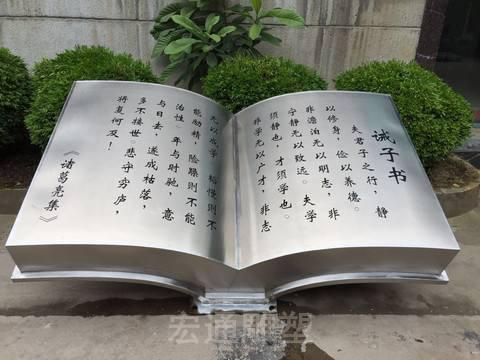 诫子书
夫君子之行，静
以修身，俭以养德。
非澹泊无以明志，非
宁静无以致远。夫学
须静也，才须学也。
非学无以广才，非志
无以成学。慢则不
能励精，险躁则不能
治性。年与时驰，意
与日去，遂成枯落，
多不接世。悲守穷庐，
将复何及！
《诸葛亮集》
宏通雕塑